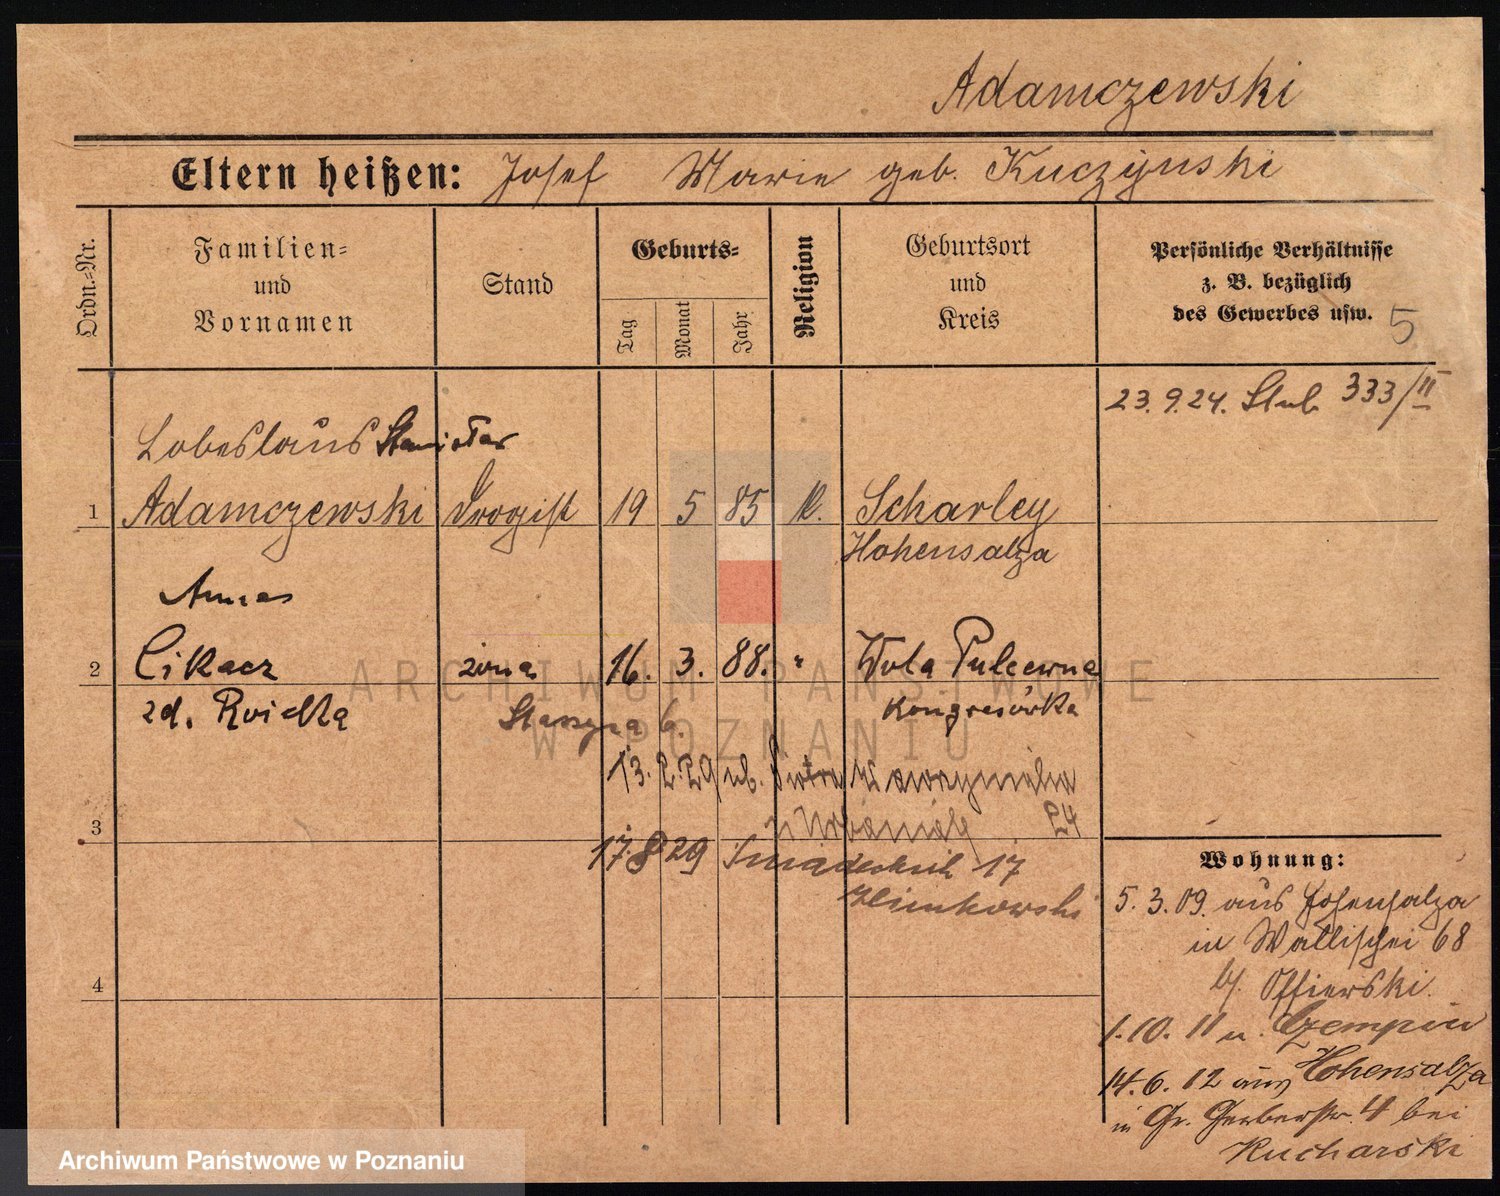 Adamczewski
Eltern heißen: Josef Marie geb. Kuczynski
Ordn.-Nr.
Familien- und Vornamen
Stand
Geburts-
Tag
Monat
Jahr
Religion
Geburtsort und Kreis
Persönliche Verhältnisse
z. B. bezüglich
des Gewerbes usw. 5
23. 9. 24. 333/II
Lobeslaus Stanisław
1 Adamczewski Drogist 19 5 85 K. Scharley
Hohensalza
2 żona 16. 3. 88. " Wola
zd. Kongresówka
13. 2. 29
3 24
17. 8 29 17
4
Wohnung:
5. 3. 09. aus Hohensalza
in Wallischei 68
b/. Offierski.
1. 10. 11 n. Czempin
14. 6. 12 aus Hohensalza
in Gr. Gerberstr. 4 bei
Kucharski
ARCHIWUM PAŃSTWOWE
W POZNANIU
Archiwum Państwowe w Poznaniu